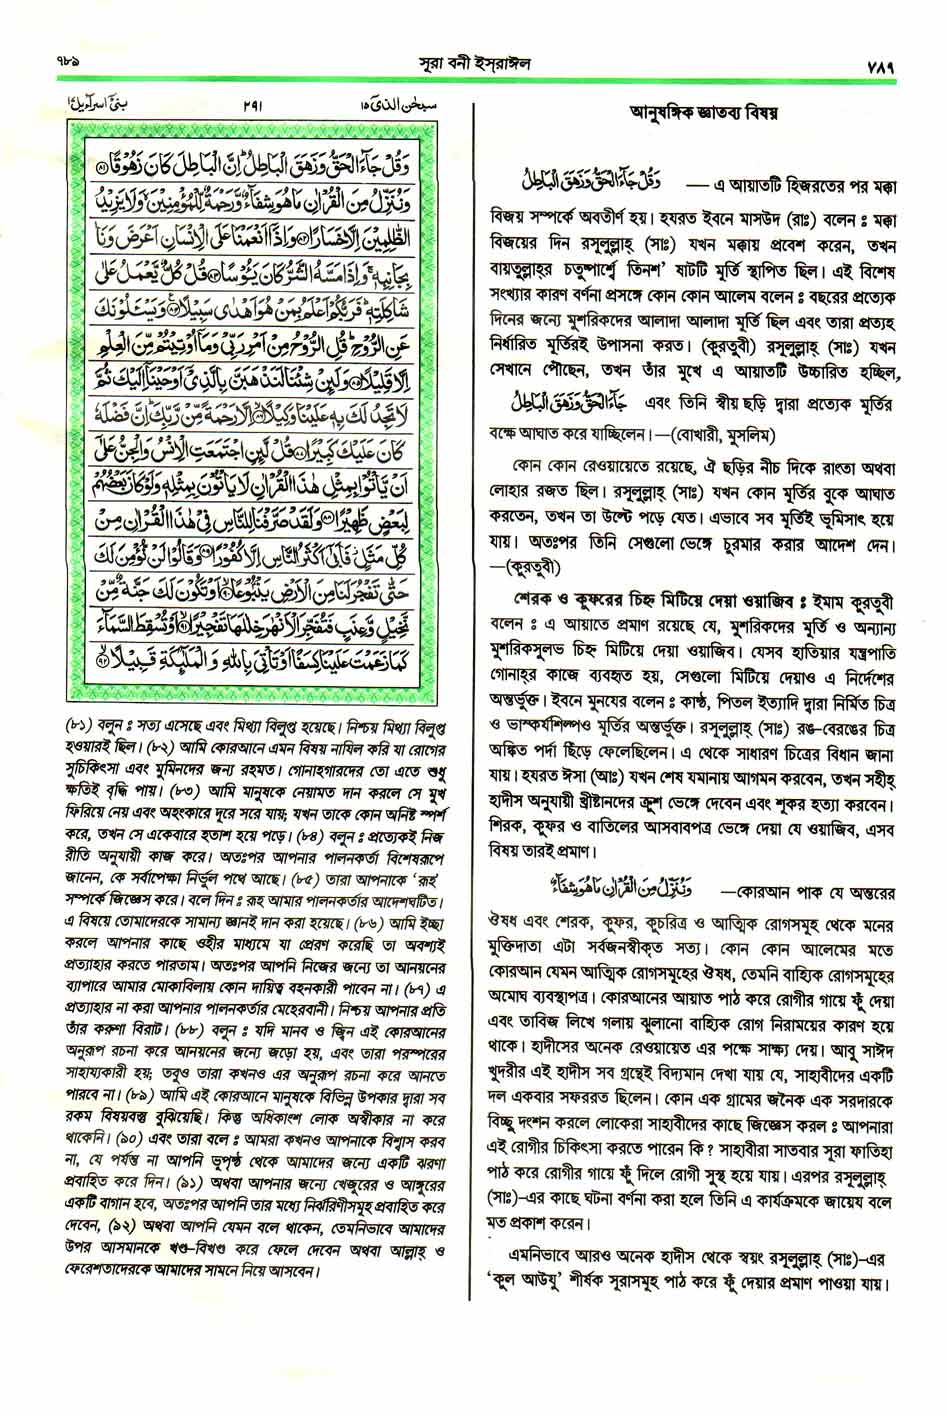 ৭৮৯
সূরা বনী ইস্‌রাঈল
৭৮৯
سبحٰن الذی ١٥
٢٩١
بنیٓ اسرآءیل ١٧
وَقُلْ جَآءَ الْحَقُّ وَزَهَقَ الْبَاطِلُ ؕ اِنَّ الْبَاطِلَ كَانَ زَهُوْقًا ﴿٨١﴾
وَنُنَزِّلُ مِنَ الْقُرْاٰنِ مَا هُوَ شِفَآءٌ وَّرَحْمَةٌ لِّلْمُؤْمِنِيْنَ ۙ وَلَا يَزِيْدُ
الظّٰلِمِيْنَ اِلَّا خَسَارًا ﴿٨٢﴾ وَاِذَآ اَنْعَمْنَا عَلَى الْاِنْسَانِ اَعْرَضَ وَنَاٰ
بِجَانِبِهٖ ۚ وَاِذَا مَسَّهُ الشَّرُّ كَانَ يَئُوْسًا ﴿٨٣﴾ قُلْ كُلٌّ يَّعْمَلُ عَلٰى
شَاكِلَتِهٖ ؕ فَرَبُّكُمْ اَعْلَمُ بِمَنْ هُوَ اَهْدٰى سَبِيْلًا ﴿٨٤﴾ وَيَسْـَٔلُوْنَكَ
عَنِ الرُّوْحِ ؕ قُلِ الرُّوْحُ مِنْ اَمْرِ رَبِّيْ وَمَآ اُوْتِيْتُمْ مِّنَ الْعِلْمِ
اِلَّا قَلِيْلًا ﴿٨٥﴾ وَلَئِنْ شِئْنَا لَنَذْهَبَنَّ بِالَّذِيْٓ اَوْحَيْنَآ اِلَيْكَ ثُمَّ
لَا تَجِدُ لَكَ بِهٖ عَلَيْنَا وَكِيْلًا ﴿٨٦﴾ اِلَّا رَحْمَةً مِّنْ رَّبِّكَ ؕ اِنَّ فَضْلَهٗ
كَانَ عَلَيْكَ كَبِيْرًا ﴿٨٧﴾ قُلْ لَّئِنِ اجْتَمَعَتِ الْاِنْسُ وَالْجِنُّ عَلٰٓى
اَنْ يَّاْتُوْا بِمِثْلِ هٰذَا الْقُرْاٰنِ لَا يَاْتُوْنَ بِمِثْلِهٖ وَلَوْ كَانَ بَعْضُهُمْ
لِبَعْضٍ ظَهِيْرًا ﴿٨٨﴾ وَلَقَدْ صَرَّفْنَا لِلنَّاسِ فِيْ هٰذَا الْقُرْاٰنِ مِنْ
كُلِّ مَثَلٍ ؗ فَاَبٰٓى اَكْثَرُ النَّاسِ اِلَّا كُفُوْرًا ﴿٨٩﴾ وَقَالُوْا لَنْ نُّؤْمِنَ لَكَ
حَتّٰى تَفْجُرَ لَنَا مِنَ الْاَرْضِ يَنْۢبُوْعًا ﴿٩٠﴾ اَوْ تَكُوْنَ لَكَ جَنَّةٌ مِّنْ
نَّخِيْلٍ وَّعِنَبٍ فَتُفَجِّرَ الْاَنْهٰرَ خِلٰلَهَا تَفْجِيْرًا ﴿٩١﴾ اَوْ تُسْقِطَ السَّمَآءَ
كَمَا زَعَمْتَ عَلَيْنَا كِسَفًا اَوْ تَاْتِيَ بِاللّٰهِ وَالْمَلٰٓئِكَةِ قَبِيْلًا ﴿٩٢﴾
(৮১) বলুন : সত্য এসেছে এবং মিথ্যা বিলুপ্ত হয়েছে। নিশ্চয় মিথ্যা বিলুপ্ত
হওয়ারই ছিল। (৮২) আমি কোরআনে এমন বিষয় নাযিল করি যা রোগের
সুচিকিৎসা এবং মুমিনদের জন্য রহমত। গোনাহগারদের তো এতে শুধু
ক্ষতিই বৃদ্ধি পায়। (৮৩) আমি মানুষকে নেয়ামত দান করলে সে মুখ
ফিরিয়ে নেয় এবং অহংকারে দূরে সরে যায়; যখন তাকে কোন অনিষ্ট স্পর্শ
করে, তখন সে একেবারে হতাশ হয়ে পড়ে। (৮৪) বলুন : প্রত্যেকই নিজ
রীতি অনুযায়ী কাজ করে। অতঃপর আপনার পালনকর্তা বিশেষরূপে
জানেন, কে সর্বাপেক্ষা নির্ভুল পথে আছে। (৮৫) তারা আপনাকে ‘রূহ’
সম্পর্কে জিজ্ঞেস করে। বলে দিন : রূহ আমার পালনকর্তার আদেশঘটিত।
এ বিষয়ে তোমাদেরকে সামান্য জ্ঞানই দান করা হয়েছে। (৮৬) আমি ইচ্ছা
করলে আপনার কাছে ওহীর মাধ্যমে যা প্রেরণ করেছি তা অবশ্যই
প্রত্যাহার করতে পারতাম। অতঃপর আপনি নিজের জন্যে তা আনয়নের
ব্যাপারে আমার মোকাবিলায় কোন দায়িত্ব বহনকারী পাবেন না। (৮৭) এ
প্রত্যাহার না করা আপনার পালনকর্তার মেহেরবানী। নিশ্চয় আপনার প্রতি
তাঁর করুণা বিরাট। (৮৮) বলুন : যদি মানব ও জ্বিন এই কোরআনের
অনুরূপ রচনা করে আনয়নের জন্যে জড়ো হয়, এবং তারা পরস্পরের
সাহায্যকারী হয়; তবুও তারা কখনও এর অনুরূপ রচনা করে আনতে
পারবে না। (৮৯) আমি এই কোরআনে মানুষকে বিভিন্ন উপকার দ্বারা সব
রকম বিষয়বস্তু বুঝিয়েছি। কিন্তু অধিকাংশ লোক অস্বীকার না করে
থাকেনি। (৯০) এবং তারা বলে : আমরা কখনও আপনাকে বিশ্বাস করব
না, যে পর্যন্ত না আপনি ভূপৃষ্ঠ থেকে আমাদের জন্যে একটি ঝরণা
প্রবাহিত করে দিন। (৯১) অথবা আপনার জন্যে খেজুরের ও আঙ্গুরের
একটি বাগান হবে, অতঃপর আপনি তার মধ্যে নির্ঝরিণীসমূহ প্রবাহিত করে
দেবেন, (৯২) অথবা আপনি যেমন বলে থাকেন, তেমনিভাবে আমাদের
উপর আসমানকে খণ্ড-বিখণ্ড করে ফেলে দেবেন অথবা আল্লাহ্ ও
ফেরেশতাদেরকে আমাদের সামনে নিয়ে আসবেন।
আনুষঙ্গিক জ্ঞাতব্য বিষয়
وَقُلْ جَآءَ الْحَقُّ وَزَهَقَ الْبَاطِلُ — এ আয়াতটি হিজরতের পর মক্কা
বিজয় সম্পর্কে অবতীর্ণ হয়। হযরত ইবনে মাসউদ (রাঃ) বলেন : মক্কা
বিজয়ের দিন রসূলুল্লাহ্ (সাঃ) যখন মক্কায় প্রবেশ করেন, তখন
বায়তুল্লাহ্‌র চতুষ্পার্শ্বে তিনশ’ ষাটটি মূর্তি স্থাপিত ছিল। এই বিশেষ
সংখ্যার কারণ বর্ণনা প্রসঙ্গে কোন কোন আলেম বলেন : বছরের প্রত্যেক
দিনের জন্যে মুশরিকদের আলাদা আলাদা মূর্তি ছিল এবং তারা প্রত্যহ
নির্ধারিত মূর্তিরই উপাসনা করত। (কুরতুবী) রসূলুল্লাহ্ (সাঃ) যখন
সেখানে পৌছেন, তখন তাঁর মুখে এ আয়াতটি উচ্চারিত হচ্ছিল,
جَآءَ الْحَقُّ وَزَهَقَ الْبَاطِلُ এবং তিনি স্বীয় ছড়ি দ্বারা প্রত্যেক মূর্তির
বক্ষে আঘাত করে যাচ্ছিলেন।—(বোখারী, মুসলিম)
কোন কোন রেওয়ায়েতে রয়েছে, ঐ ছড়ির নীচ দিকে রাংতা অথবা
লোহার রজত ছিল। রসূলুল্লাহ্ (সাঃ) যখন কোন মূর্তির বুকে আঘাত
করতেন, তখন তা উল্টে পড়ে যেত। এভাবে সব মূর্তিই ভূমিসাৎ হয়ে
যায়। অতঃপর তিনি সেগুলো ভেঙ্গে চুরমার করার আদেশ দেন।
—(কুরতুবী)
শেরক ও কুফরের চিহ্ন মিটিয়ে দেয়া ওয়াজিব : ইমাম কুরতুবী
বলেন : এ আয়াতে প্রমাণ রয়েছে যে, মুশরিকদের মূর্তি ও অন্যান্য
মুশরিকসুলভ চিহ্ন মিটিয়ে দেয়া ওয়াজিব। যেসব হাতিয়ার যন্ত্রপাতি
গোনাহ্‌র কাজে ব্যবহৃত হয়, সেগুলো মিটিয়ে দেয়াও এ নির্দেশের
অন্তর্ভুক্ত। ইবনে মুনযের বলেন : কাষ্ঠ, পিতল ইত্যাদি দ্বারা নির্মিত চিত্র
ও ভাস্কর্যশিল্পও মূর্তির অন্তর্ভুক্ত। রসূলুল্লাহ্ (সাঃ) রঙ-বেরঙের চিত্র
অঙ্কিত পর্দা ছিঁড়ে ফেলেছিলেন। এ থেকে সাধারণ চিত্রের বিধান জানা
যায়। হযরত ঈসা (আঃ) যখন শেষ যমানায় আগমন করবেন, তখন সহীহ্
হাদীস অনুযায়ী খ্রীষ্টানদের ক্রুশ ভেঙ্গে দেবেন এবং শূকর হত্যা করবেন।
শিরক, কুফর ও বাতিলের আসবাবপত্র ভেঙ্গে দেয়া যে ওয়াজিব, এসব
বিষয় তারই প্রমাণ।
وَنُنَزِّلُ مِنَ الْقُرْاٰنِ مَا هُوَ شِفَآءٌ —কোরআন পাক যে অন্তরের
ঔষধ এবং শেরক, কুফর, কুচরিত্র ও আত্মিক রোগসমূহ থেকে মনের
মুক্তিদাতা এটা সর্বজনস্বীকৃত সত্য। কোন কোন আলেমের মতে
কোরআন যেমন আত্মিক রোগসমূহের ঔষধ, তেমনি বাহ্যিক রোগসমূহের
অমোঘ ব্যবস্থাপত্র। কোরআনের আয়াত পাঠ করে রোগীর গায়ে ফুঁ দেয়া
এবং তাবিজ লিখে গলায় ঝুলানো বাহ্যিক রোগ নিরাময়ের কারণ হয়ে
থাকে। হাদীসের অনেক রেওয়ায়েত এর পক্ষে সাক্ষ্য দেয়। আবু সাঈদ
খুদরীর এই হাদীস সব গ্রন্থেই বিদ্যমান দেখা যায় যে, সাহাবীদের একটি
দল একবার সফররত ছিলেন। কোন এক গ্রামের জনৈক এক সরদারকে
বিচ্ছু দংশন করলে লোকেরা সাহাবীদের কাছে জিজ্ঞেস করল : আপনারা
এই রোগীর চিকিৎসা করতে পারেন কি ? সাহাবীরা সাতবার সূরা ফাতিহা
পাঠ করে রোগীর গায়ে ফুঁ দিলে রোগী সুস্থ হয়ে যায়। এরপর রসূলুল্লাহ্
(সাঃ)-এর কাছে ঘটনা বর্ণনা করা হলে তিনি এ কার্যক্রমকে জায়েয বলে
মত প্রকাশ করেন।
এমনিভাবে আরও অনেক হাদীস থেকে স্বয়ং রসূলুল্লাহ্ (সাঃ)-এর
‘কুল আউযু’ শীর্ষক সূরাসমূহ পাঠ করে ফুঁ দেয়ার প্রমাণ পাওয়া যায়।